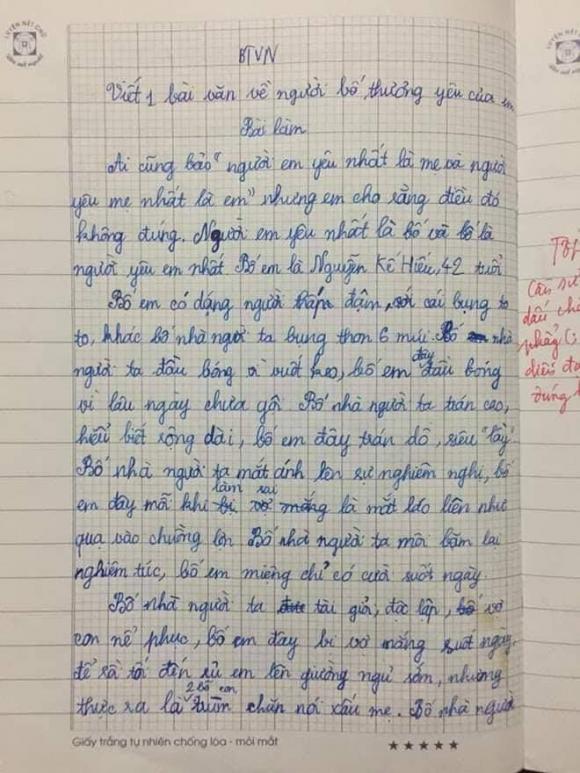 LUYỆN NÉT CHỮ
BTVN
Viết 1 bài văn về người bố thương yêu của em
Bài làm
Ai cũng bảo "người em yêu nhất là mẹ và người
yêu mẹ nhất là em" nhưng em cho rằng điều đó
không đúng. Người em yêu nhất là bố và bố là
người yêu em nhất Bố em là Nguyễn Kế Hiếu, 42 tuổi
Bố em có dáng người đậm, với cái bụng to
to, khác bố nhà người ta bụng thon 6 múi. Bố nhà
người ta đầu bóng vì vuốt keo, bố em đây đầu bóng
vì lâu ngày chưa gội Bố nhà người ta trán cao,
hiểu biết rộng dài, bố em đây trán dô, siêu "lầy"
Bố nhà người ta mắt ánh lên sự nghiêm nghị, bố
em đây mỗi khi làm sai là mắt láo liên như
quạ vào chuồng lợn Bố nhà người ta môi bặm lại
nghiêm túc, bố em miệng chỉ có cười suốt ngày
Bố nhà người ta tài giỏi, độc lập, vợ
con nể phục, bố em đây bị vợ mắng suốt ngày
để rồi tối đến rủ em lên giường ngủ sớm, nhưng
thực ra là 2 bố con trùm chăn nói xấu mẹ. Bố nhà người
Giấy trắng tự nhiên chống lóa - mỏi mắt
câu sử
dấu
phẩy (,)
diễn đạt
đúng